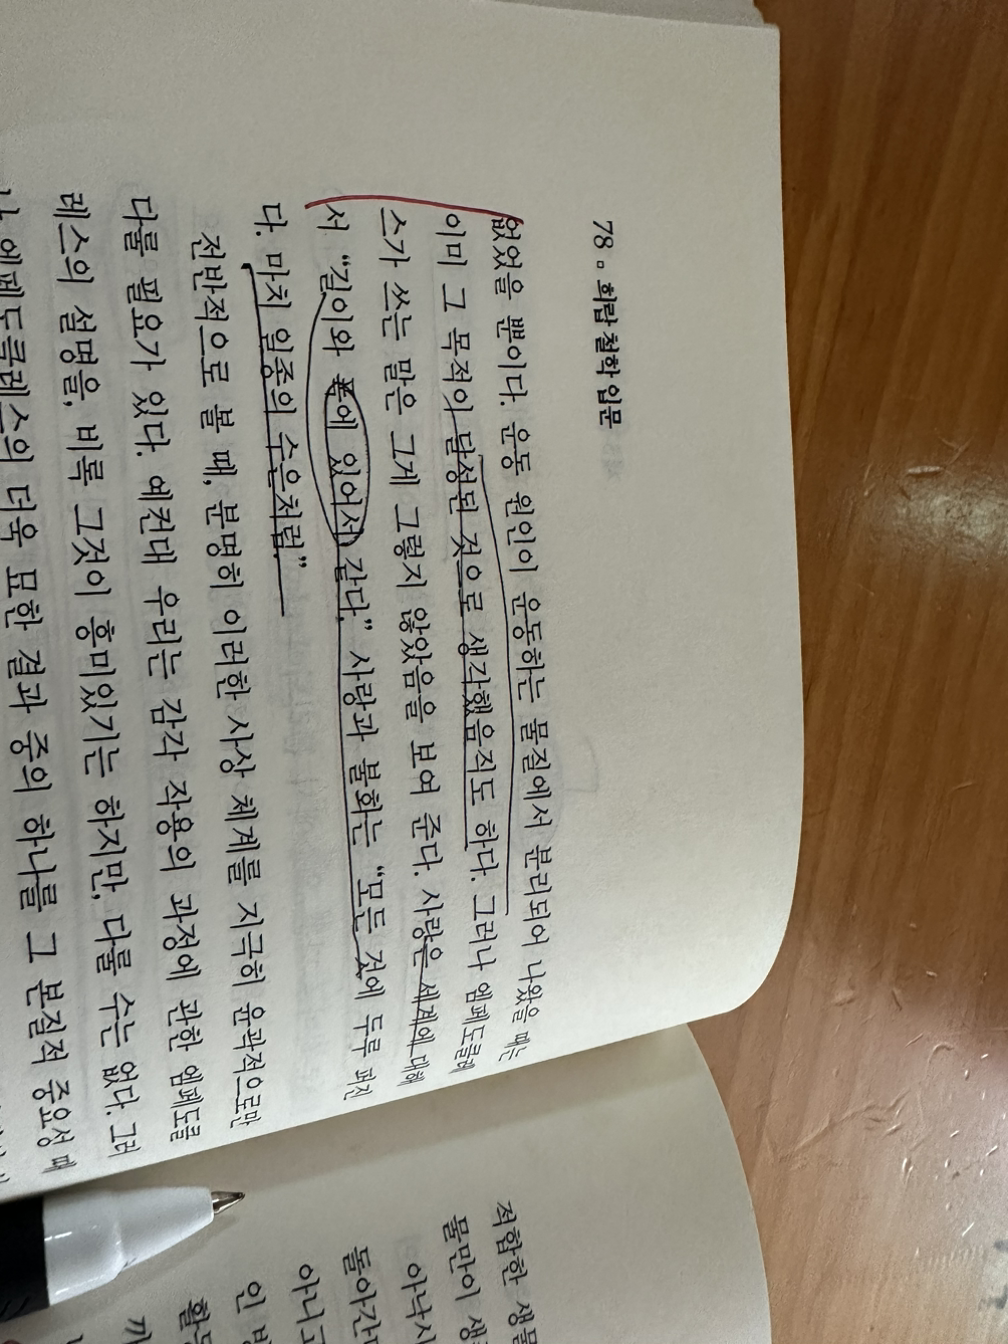 78 ▫ 희랍 철학 입문
없었을 뿐이다. 운동 원인이 운동하는 물질에서 분리되어 나왔을 때는
이미 그 목적이 달성된 것으로 생각했음직도 하다. 그러나 엠페도클레
스가 쓰는 말은 그게 그렇지 않았음을 보여 준다. 사랑은 세계에 대해
서 “길이와 폭에 있어서 같다.” 사랑과 불화는 “모든 것에 두루 퍼진
다. 마치 일종의 수은처럼.”
전반적으로 볼 때, 분명히 이러한 사상 체계를 지극히 윤곽적으로만
다룰 필요가 있다. 예컨대 우리는 감각 작용의 과정에 관한 엠페도클
레스의 설명을, 비록 그것이 흥미있기는 하지만, 다룰 수는 없다. 그러
나 엠페도클레스의 더욱 묘한 결과 중의 하나를 그 본질적 중요성 때
적합한 생물
물만이 생
아낙시
돌아간다
아니고
인 방
활동
까